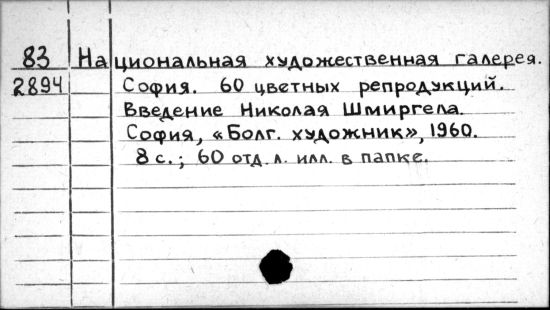 83 Национальная художественная галерея.
2894 София. 60 цветных репродукций.
Введение Николая Шмиргела.
София, «Болг. художник», 1960.
8 с.; 60 отд. л. илл. в папке.